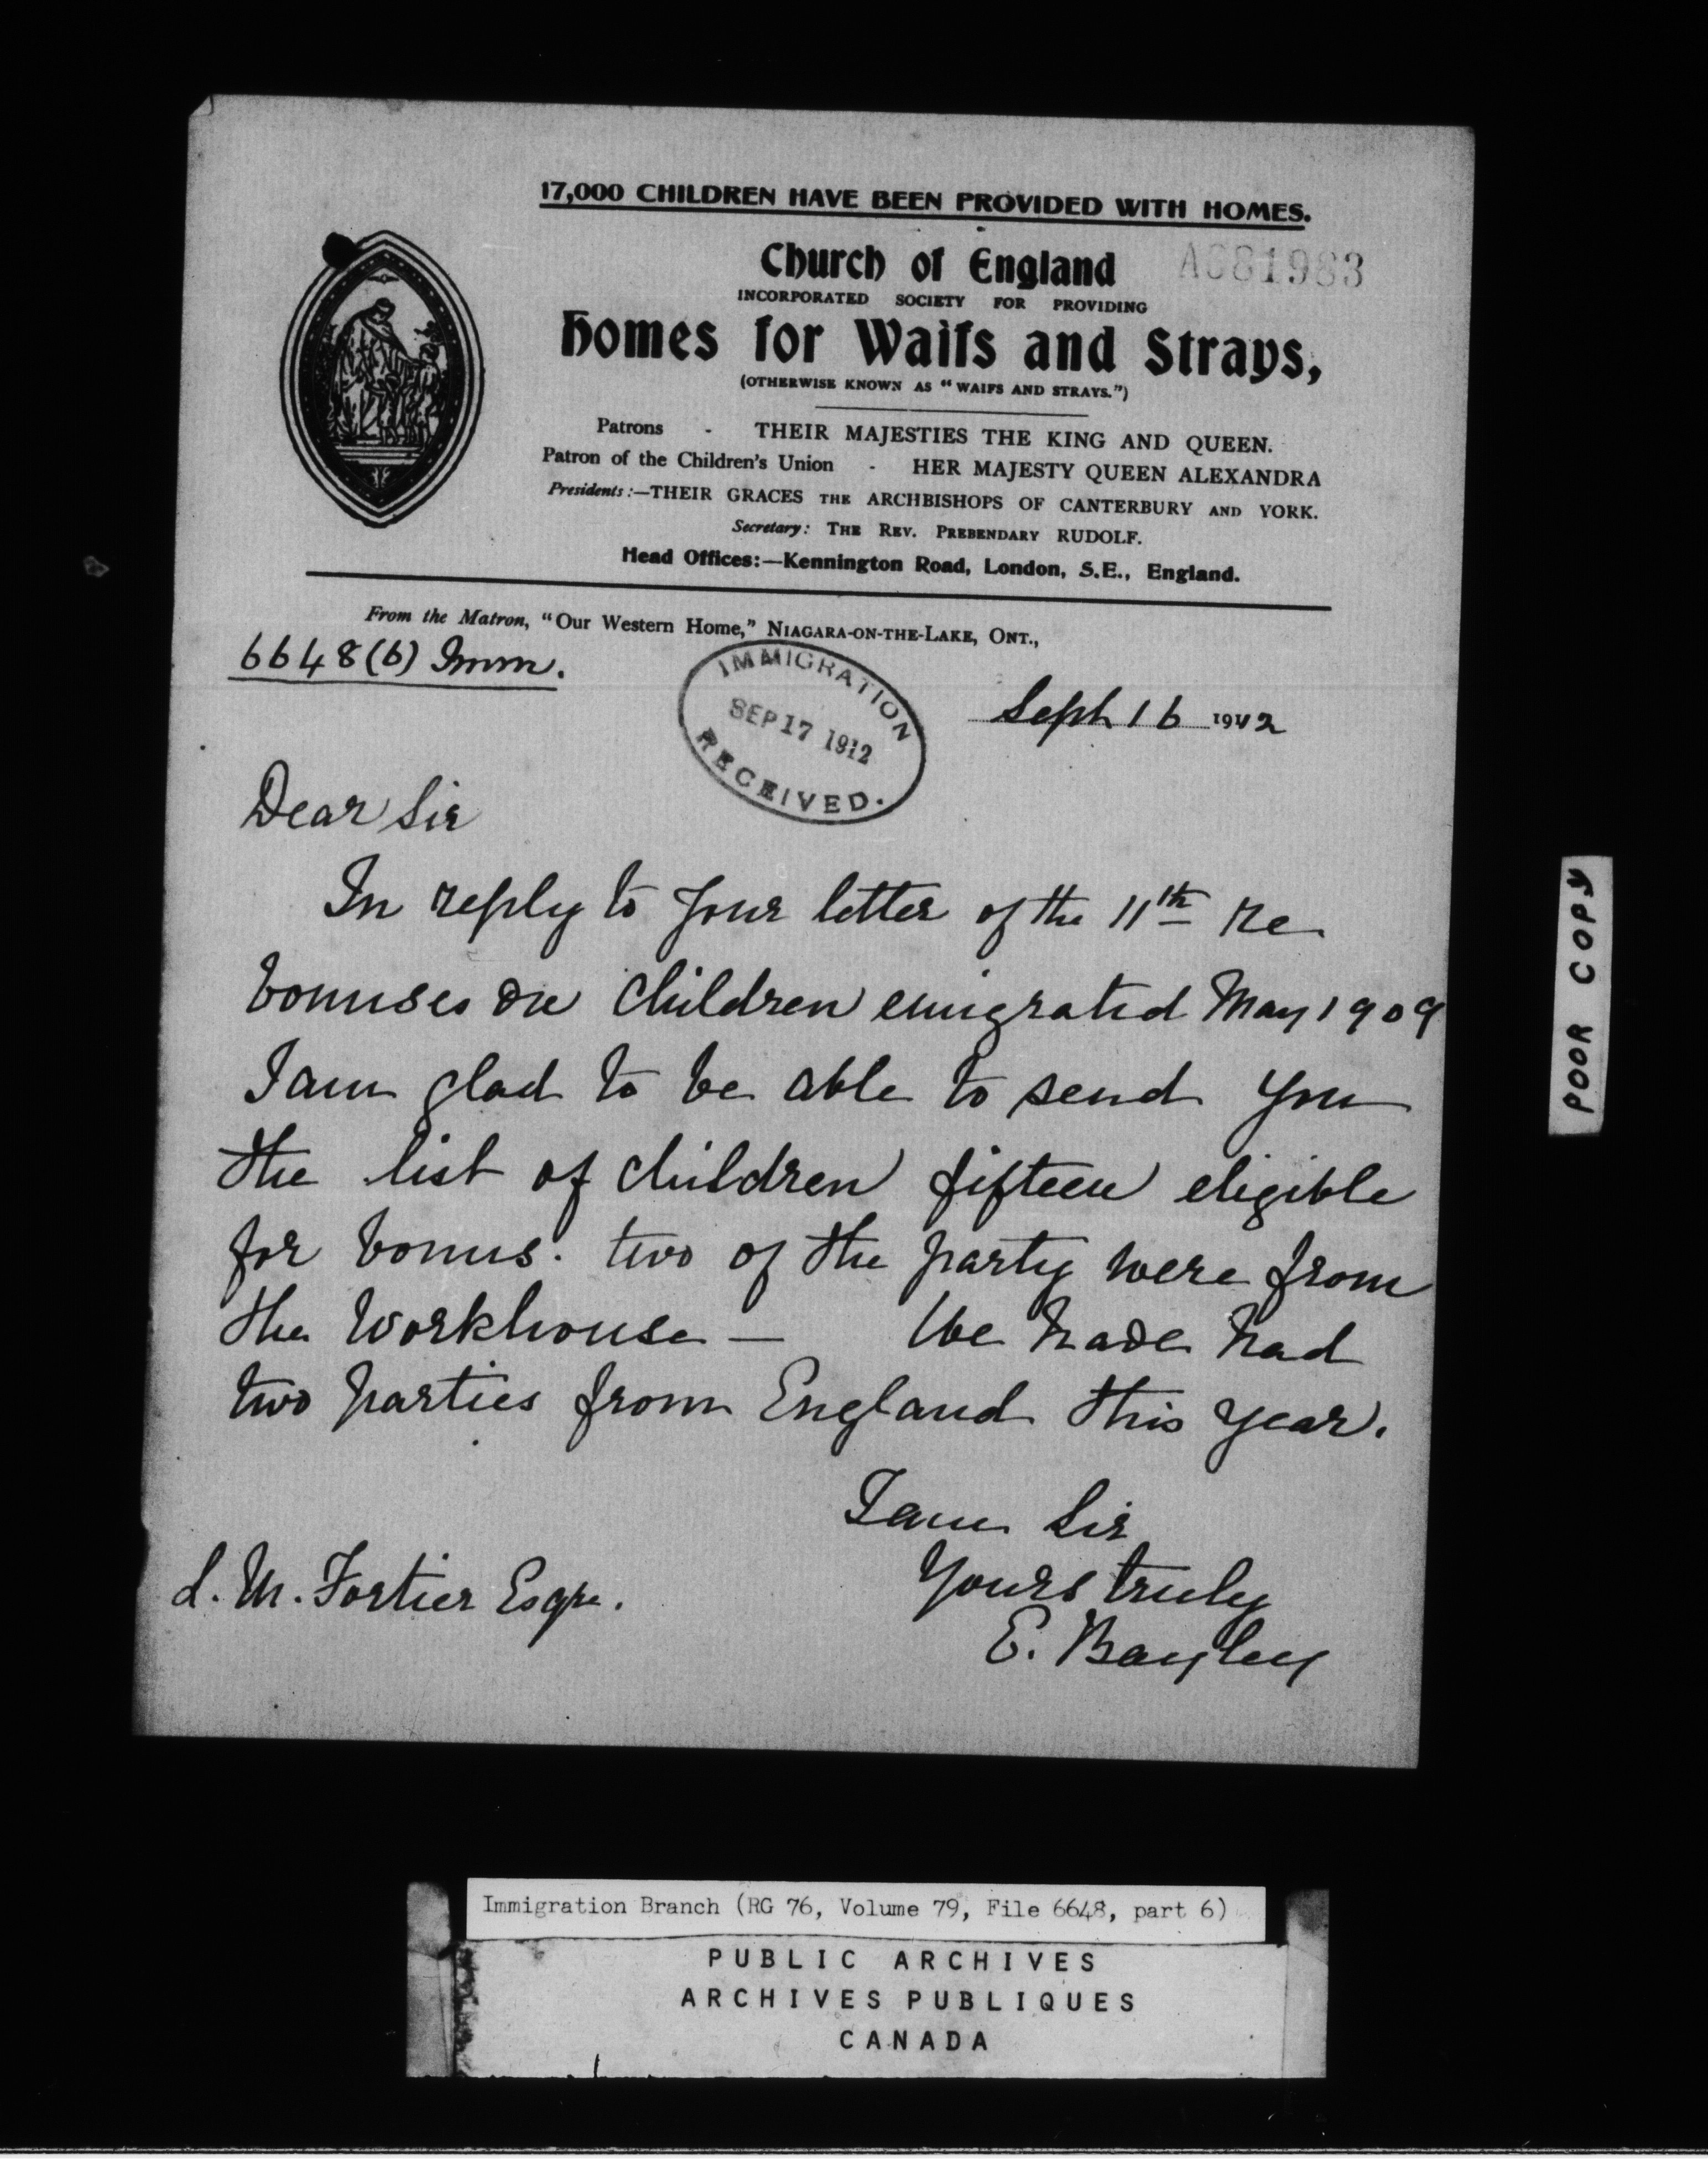 17,000 CHILDREN HAVE BEEN PROVIDED WITH HOMES.
Church of England
A681983
INCORPORATED SOCIETY FOR PROVIDING
Homes for Waifs and Strays,
(OTHERWISE KNOWN AS "WAIFS AND STRAYS.")
Patrons - THEIR MAJESTIES THE KING AND QUEEN.
Patron of the Children's Union - HER MAJESTY QUEEN ALEXANDRA
Presidents:—THEIR GRACES THE ARCHBISHOPS OF CANTERBURY AND YORK.
Secretary: THE REV. PREBENDARY RUDOLF.
Head Offices:—Kennington Road, London, S.E., England.
From the Matron, "Our Western Home," NIAGARA-ON-THE-LAKE, ONT.,
6648(6) Imm.
IMMIGRATION
SEP 17 1912
RECEIVED.
Sept 16 1912
Dear Sir
In reply to your letter of the 11th re
bonuses on children emigrated May 1909
I am glad to be able to send you
the list of children fifteen eligible
for bonus. two of the party were from
the Workhouse — We have had
two parties from England this year.
I am Sir
Yours truly
E. Bayley
L. M. Fortier Esqre.
POOR COPY
Immigration Branch (RG 76, Volume 79, File 6648, part 6)
PUBLIC ARCHIVES
ARCHIVES PUBLIQUES
CANADA